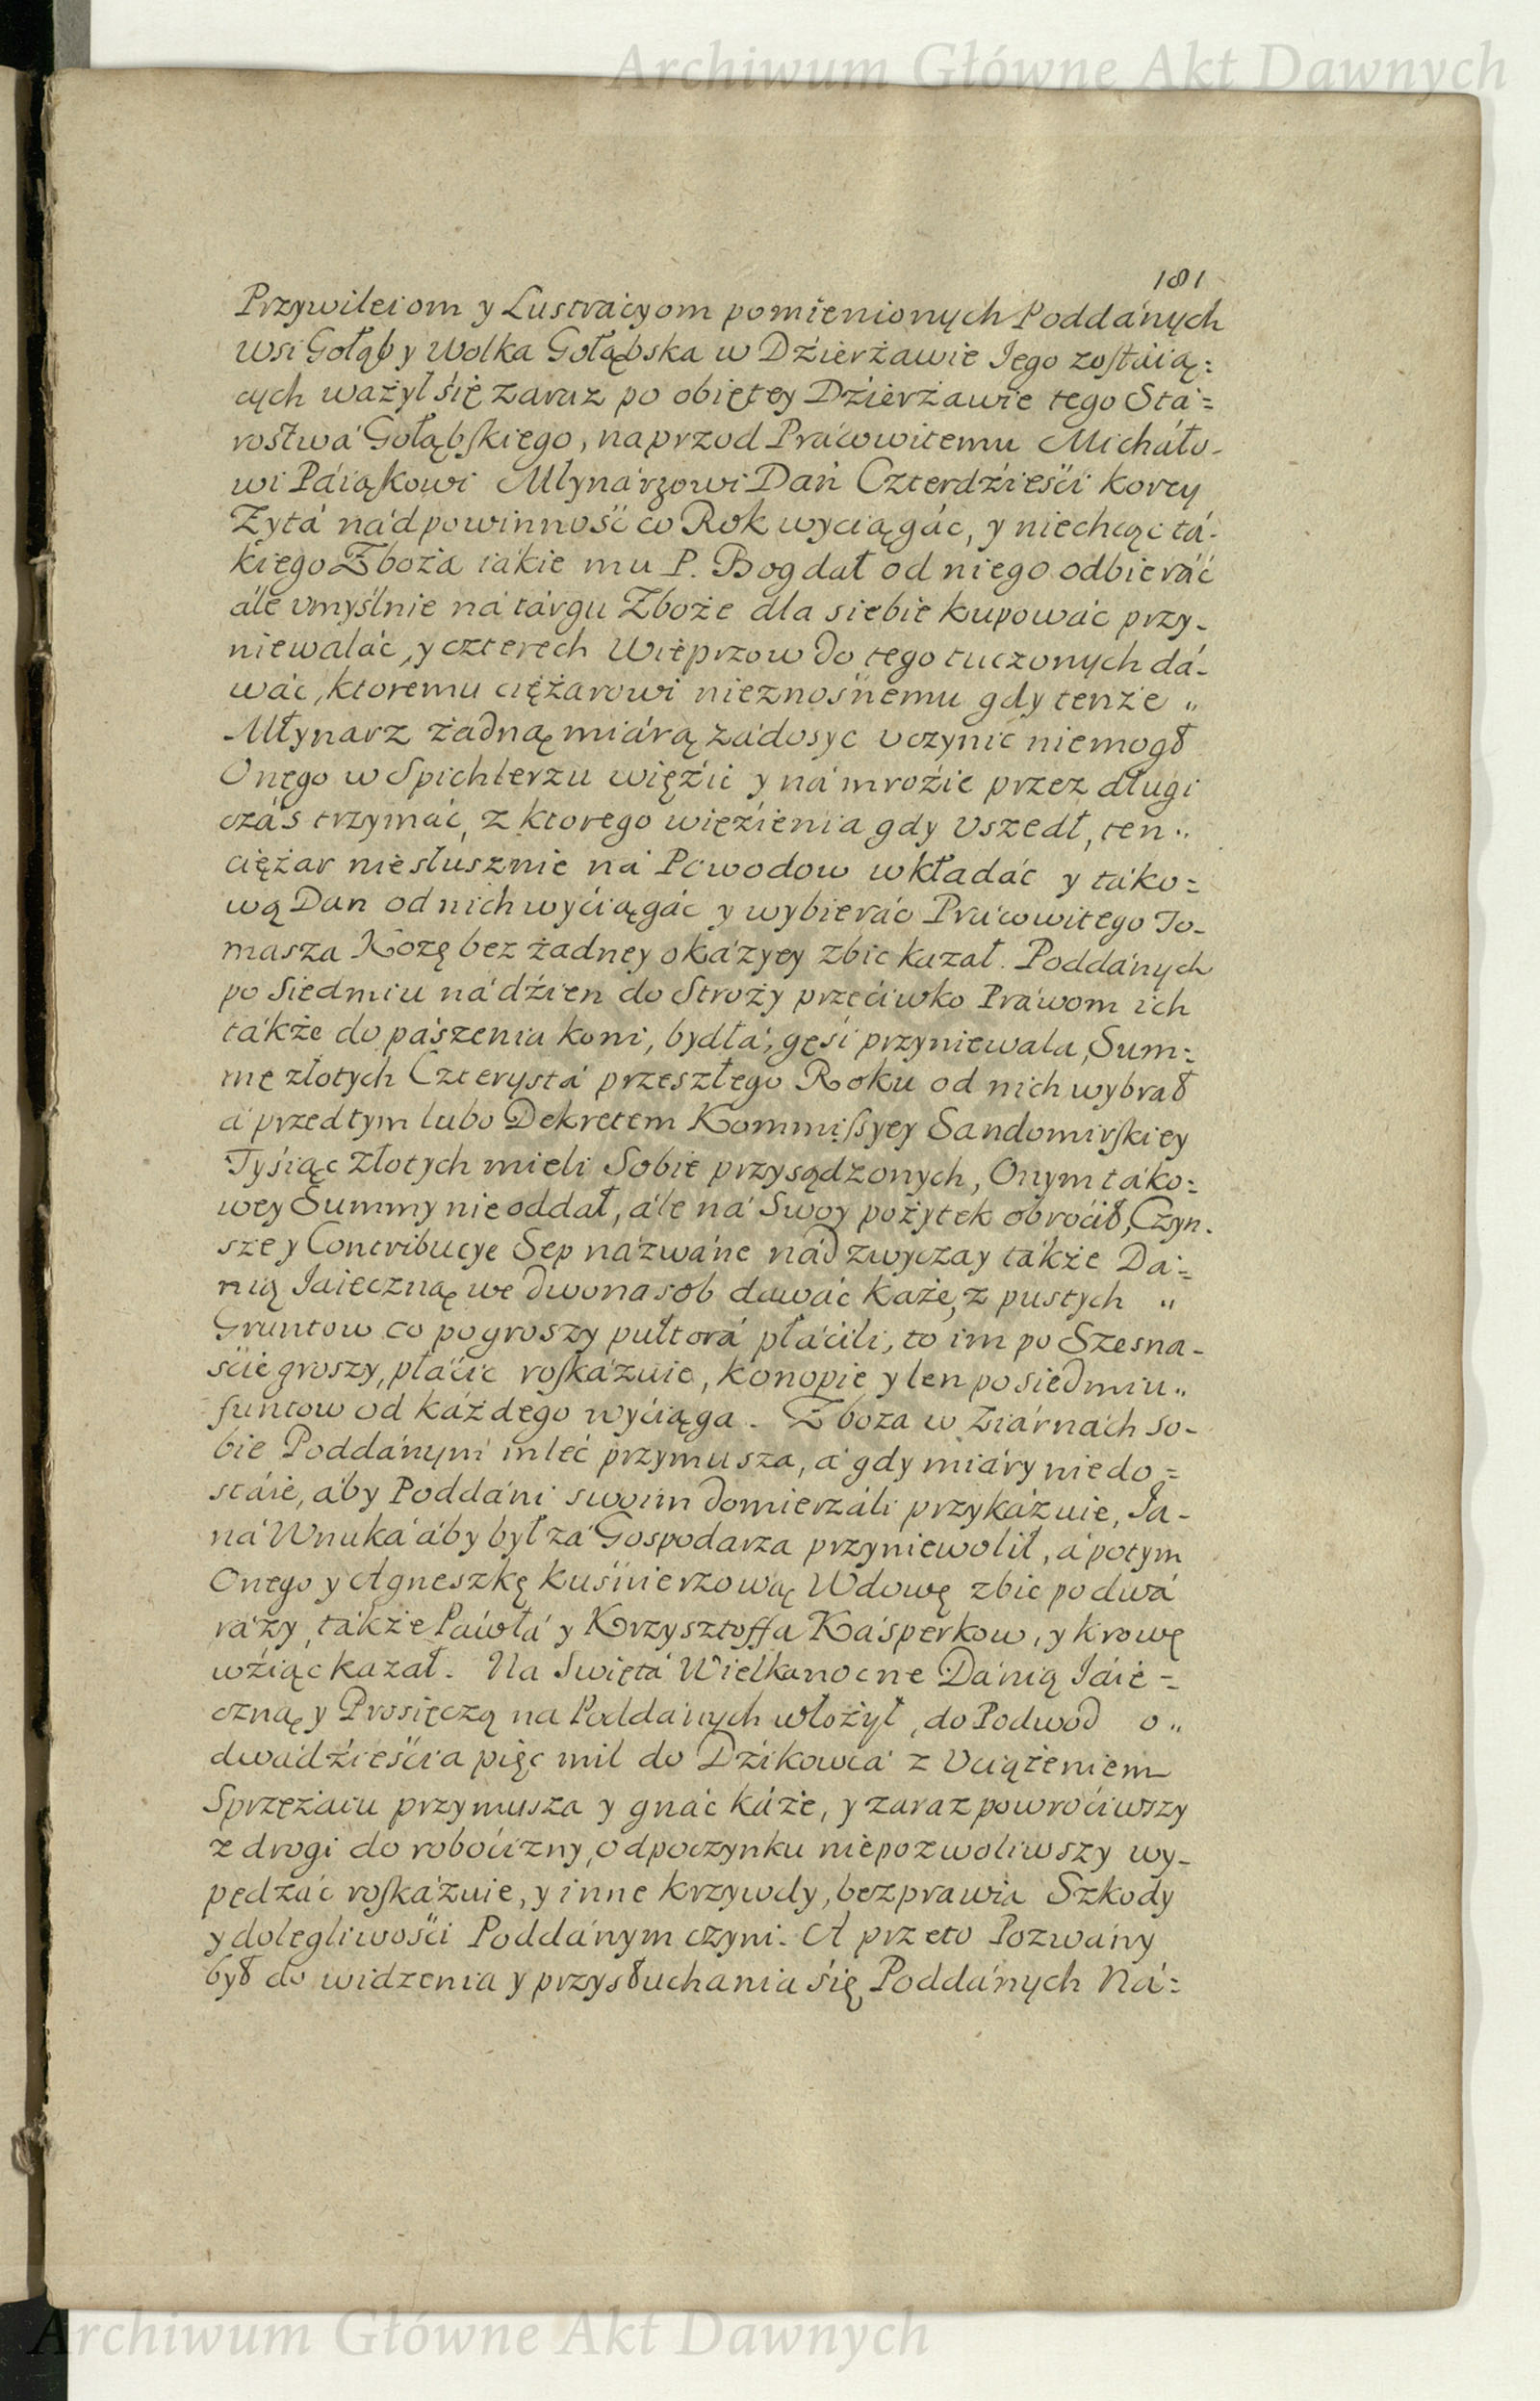 Archiwum Główne Akt Dawnych
181
Przywileiom y Lustracyom pomienionych Poddánych
wsi Gołąb y Wolka Gołąbska w Dźierżawie Iego zostáią=
cych ważył się zaraz po obiętey Dźierżawie tego Stá=
rostwá Gołąbskiego, naprzod Prácowitemu Micháło-
wi Páiąkowi Młynárzowi Dań Czterdźieśći korcy
Żytá nád powinność co Rok wyciągáć, y niechcąc tá-
kiego Zboża iákie mu P. Bog dał od niego odbieráć
ále vmyślnie ná tárgu Zboże dla siebie kupowáć przy-
niewaláć, y czterech Wieprzow do tego tuczonych dá-
wáć, ktoremu ciężarowi nieznośnemu gdy tenże „
Młynarz żadną miárą zádosyc vczynić niemogł
Onego w Spichlerzu więźić y ná mroźie przez długi
czás trzymáć, z ktorego więźienia gdy Vszedł, ten „
ciężar niesłusznie ná Powodow wkładáć y táko=
wą Dan od nich wyćiągáć y wybieráć Prácowitego To-
masza Kozę bez żadney okázyey zbić kazał. Poddánych
po Siedmiu ná dźien do Stroży przećiwko Práwom ich
tákże do pászenia koni, bydłá, gęśi przyniewala, Sum=
mę złotych Czterystá przeszłego Roku od nich wybrał
á przedtym lubo Dekretem Kommissyey Sandomirskiey
Tyśiąc złotych mieli Sobie przysądzonych, Onym táko=
wey Summy nie oddał, ále ná Swoy pożytek obroćił, Czyn-
sze y Contribucye Sep názwáne nád zwyczay tákże Dá=
nią Iaieczną we dwonasob dawáć każe, z pustych „
Gruntow co po groszy pułtorá płáćili, to im po Szesna-
śćie groszy, płáćić roskázuie, konopie y len po siedmiu „
funtow od káżdego wyćiąga. Zboza w Ziárnách so-
bie Poddánym mleć przymusza, á gdy miáry niedo=
stáie, áby Poddáni swoim domierzáli przykázuie, Ja-
ná Wnuká áby był zá Gospodarza przyniewolił, á potym
Onego y Agneszkę kuśnierzową Wdowę zbić po dwá
rázy, tákże Páwłá y Krzysztoffa Kásperkow, y krowę
wźiąc kazał. Na Swiętá Wielkanocne Dánią Iáie=
czną y Prosięczą na Poddánych włożył, do Podwod o „
dwádźieśćia pięc mil do Dźikowcá z Vciążeniem
Sprzężáiu przymusza y gnáć káże, y zaraz powroćiwszy
z drogi do roboćizny, odpoczynku niepozwoliwszy wy-
pędzáć roskázuie, y inne krzywdy, bezprawia Szkody
y dolegliwośći Poddánym czyni. A przeto Pozwány
był do widzenia y przysłuchania się Poddánych Ná=
Archiwum Główne Akt Dawnych